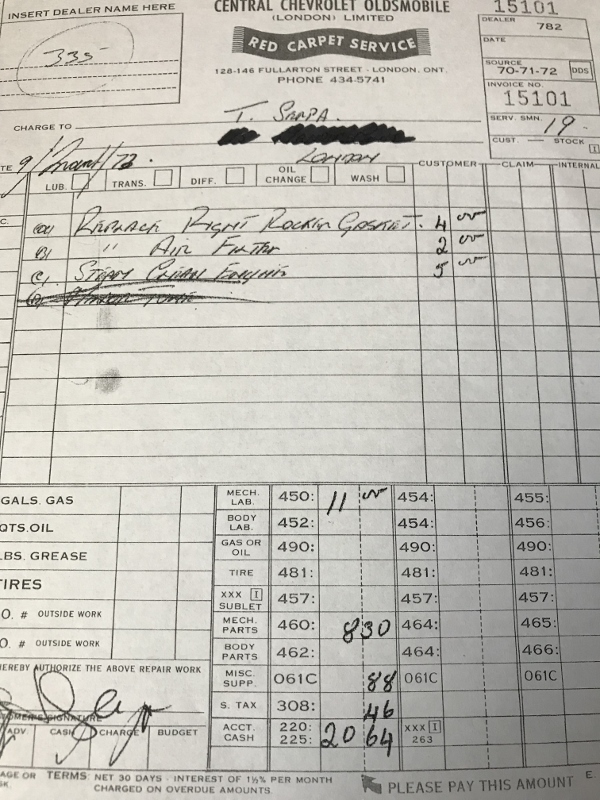 INSERT DEALER NAME HERE
335
CENTRAL CHEVROLET OLDSMOBILE
(LONDON) LIMITED
RED CARPET SERVICE
128-146 FULLARTON STREET - LONDON, ONT.
PHONE 434-5741
15101
DEALER
782
DATE
SOURCE
70-71-72 DDS
INVOICE NO.
15101
SERV. SMN. 19
CUST. STOCK I
CHARGE TO T. SRAPA.
LONDON
TE 9/ /72
LUB. TRANS. DIFF. OIL CHANGE WASH
CUSTOMER CLAIM INTERNAL
C.
REPLACE RIGHT ROCKER GASKET. 4 00
B) " AIR FILTER 2 00
C) STEAM CLEAN ENGINE 5 00
GALS. GAS
QTS. OIL
LBS. GREASE
TIRES
O. # OUTSIDE WORK
O. # OUTSIDE WORK
HEREBY AUTHORIZE THE ABOVE REPAIR WORK
TOMER'S SIGNATURE
ADV CASH CHARGE BUDGET
MECH. LAB. 450: 11 00 454: 455:
BODY LAB. 452: 454: 456:
GAS OR OIL 490: 490: 490:
TIRE 481: 481: 481:
XXX I SUBLET 457: 457: 457:
MECH. PARTS 460: 8 30 464: 465:
BODY PARTS 462: 464: 466:
MISC. SUPP. 061C 88 061C 061C
S. TAX 308: 46
ACCT. CASH 220: 225: 20 64 XXX I 263
AGE OR TERMS: NET 30 DAYS - INTEREST OF 1½% PER MONTH
SK. CHARGED ON OVERDUE AMOUNTS.
PLEASE PAY THIS AMOUNT E